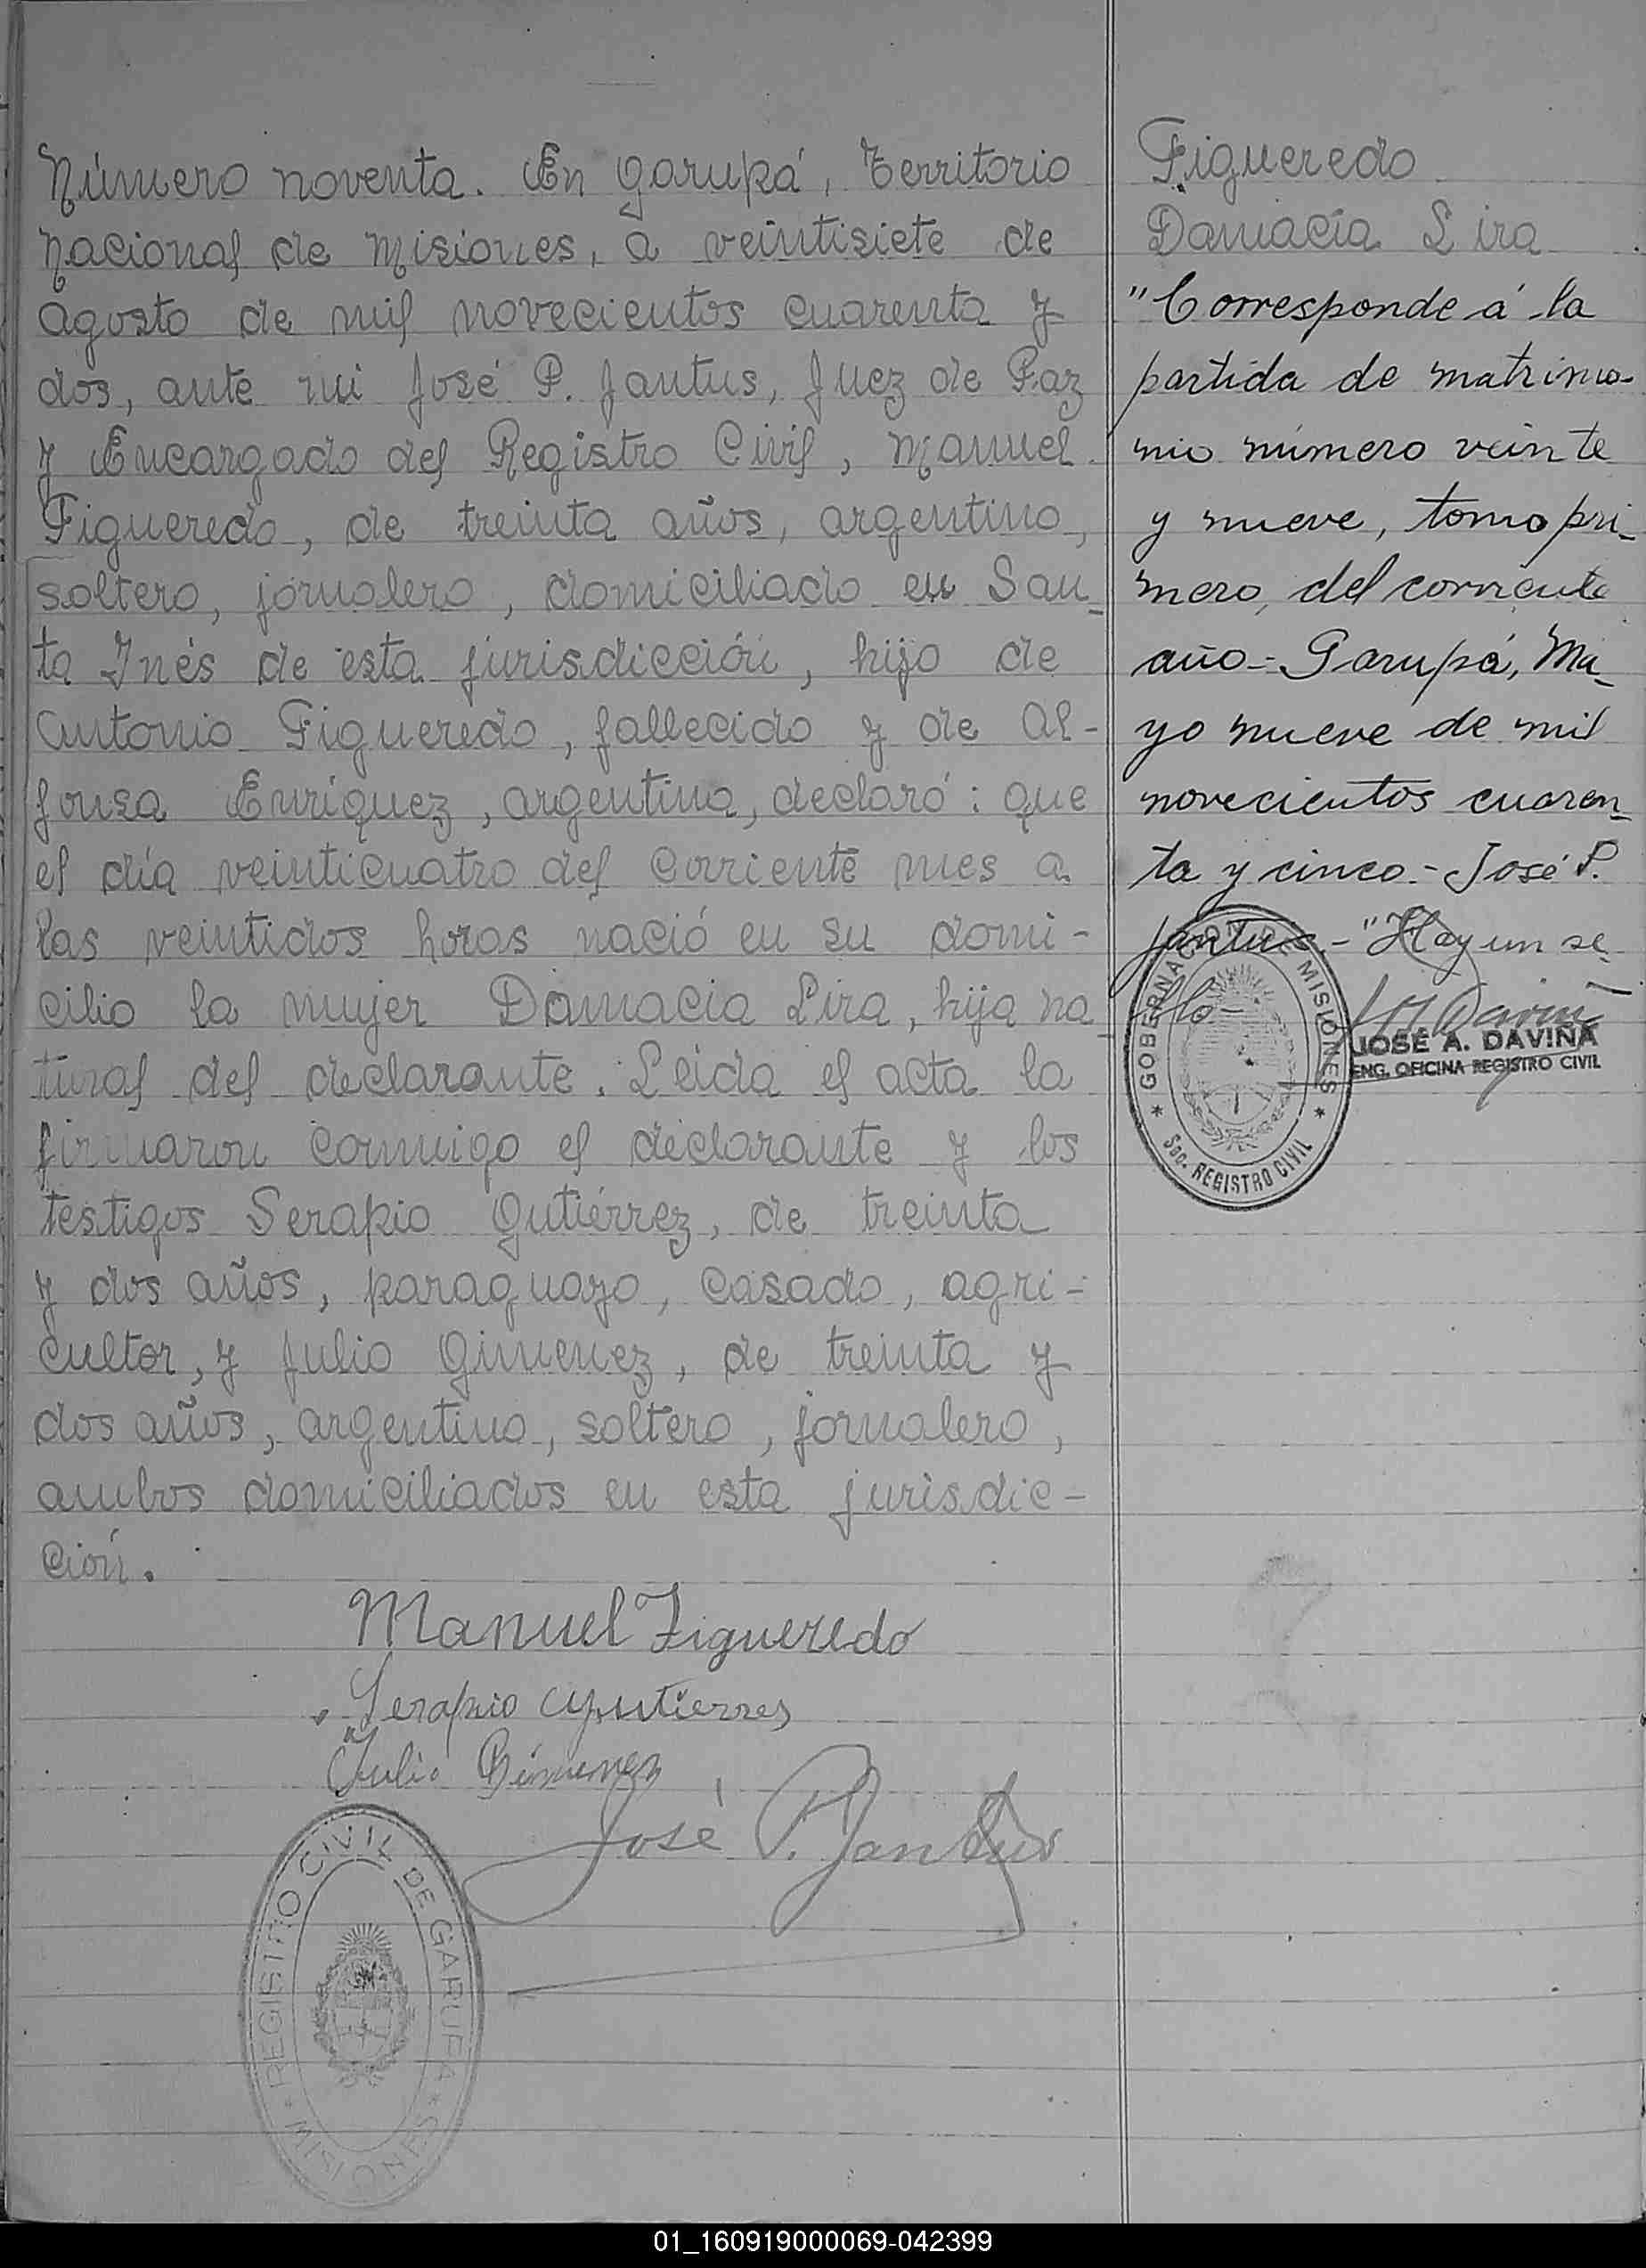 Número noventa. En Garupá, Territorio
Nacional de Misiones, a veintisiete de
Agosto de mil novecientos cuarenta y
dos, ante mi José P. Jantus, Juez de Paz
y Encargado del Registro Civil, Manuel
Figueredo, de treinta años, argentino,
soltero, jornalero, domiciliado en San_
ta Inés de esta jurisdicción, hijo de
Antonio Figueredo, fallecido y de Al-
fonsa Enríquez, argentina, declaró: que
el día veinticuatro del corriente mes a
las veintidos horas nació en su domi-
cilio la mujer Damacia Lira, hija na_
tural del declarante. Leida el acta la
firmaron conmigo el declarante y los
testigos Serapio Gutiérrez, de treinta
y dos años, paraguayo, casado, agri-
cultor, y Julio Gimenez, de treinta y
dos años, argentino, soltero, jornalero,
ambos domiciliados en esta jurisdic-
ción.
Manuel Figueredo
Serapio Gutierres
Julio Gimenez
José P. Jantus
REGISTRO CIVIL DE GARUPA
* MISIONES *
Figueredo
Damacia Lira
"Corresponde á la
partida de matrimo-
nio número veinte
y nueve, tomo pri_
mero, del corriente
año- Garupá, Ma_
yo nueve de mil
novecientos cuaren_
ta y cinco.- José P.
Jantus.- "Hay un se_
llo-
GOBERNACION DE MISIONES
* Sec. REGISTRO CIVIL *
JOSÉ A. DAVIÑA
ENG. OFICINA REGISTRO CIVIL
01_160919000069-042399